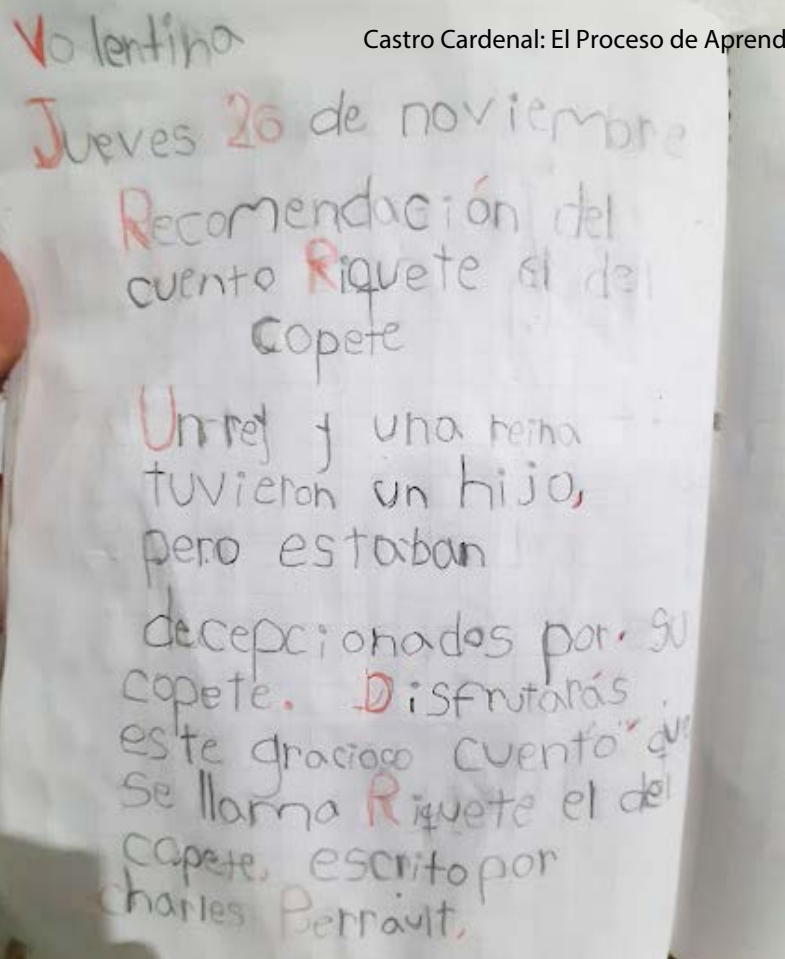 Castro Cardenal: El Proceso de Aprend
Valentina
Jueves 26 de noviembre
Recomendación del
cuento Riquete el del
copete
Un rey y una reina
tuvieron un hijo,
pero estaban
decepcionados por su
copete. Disfrutarás
este gracioso cuento que
se llama Riquete el del
copete, escrito por
Charles Perrault.